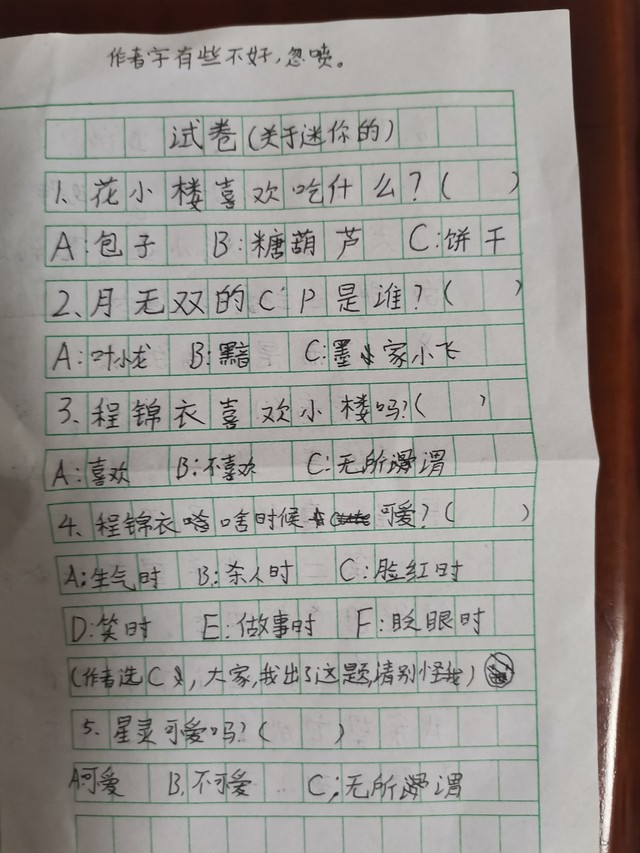 作者字有些不好,忽喷。
试卷(关于迷你的)
1、花小楼喜欢吃什么?( )
A:包子 B:糖葫芦 C:饼干
2、月无双的CP是谁?( )
A:叶小龙 B:黑暗 C:墨家小飞
3、程锦衣喜欢小楼吗?( )
A:喜欢 B:不喜欢 C:无所谓
4、程锦衣啥时候可爱?( )
A:生气时 B:杀人时 C:脸红时
D:笑时 E:做事时 F:眨眼时
(作者选C,大家,我出了这题,请别怪我)
5、星灵可爱吗?( )
A可爱 B、不可爱 C:无所谓